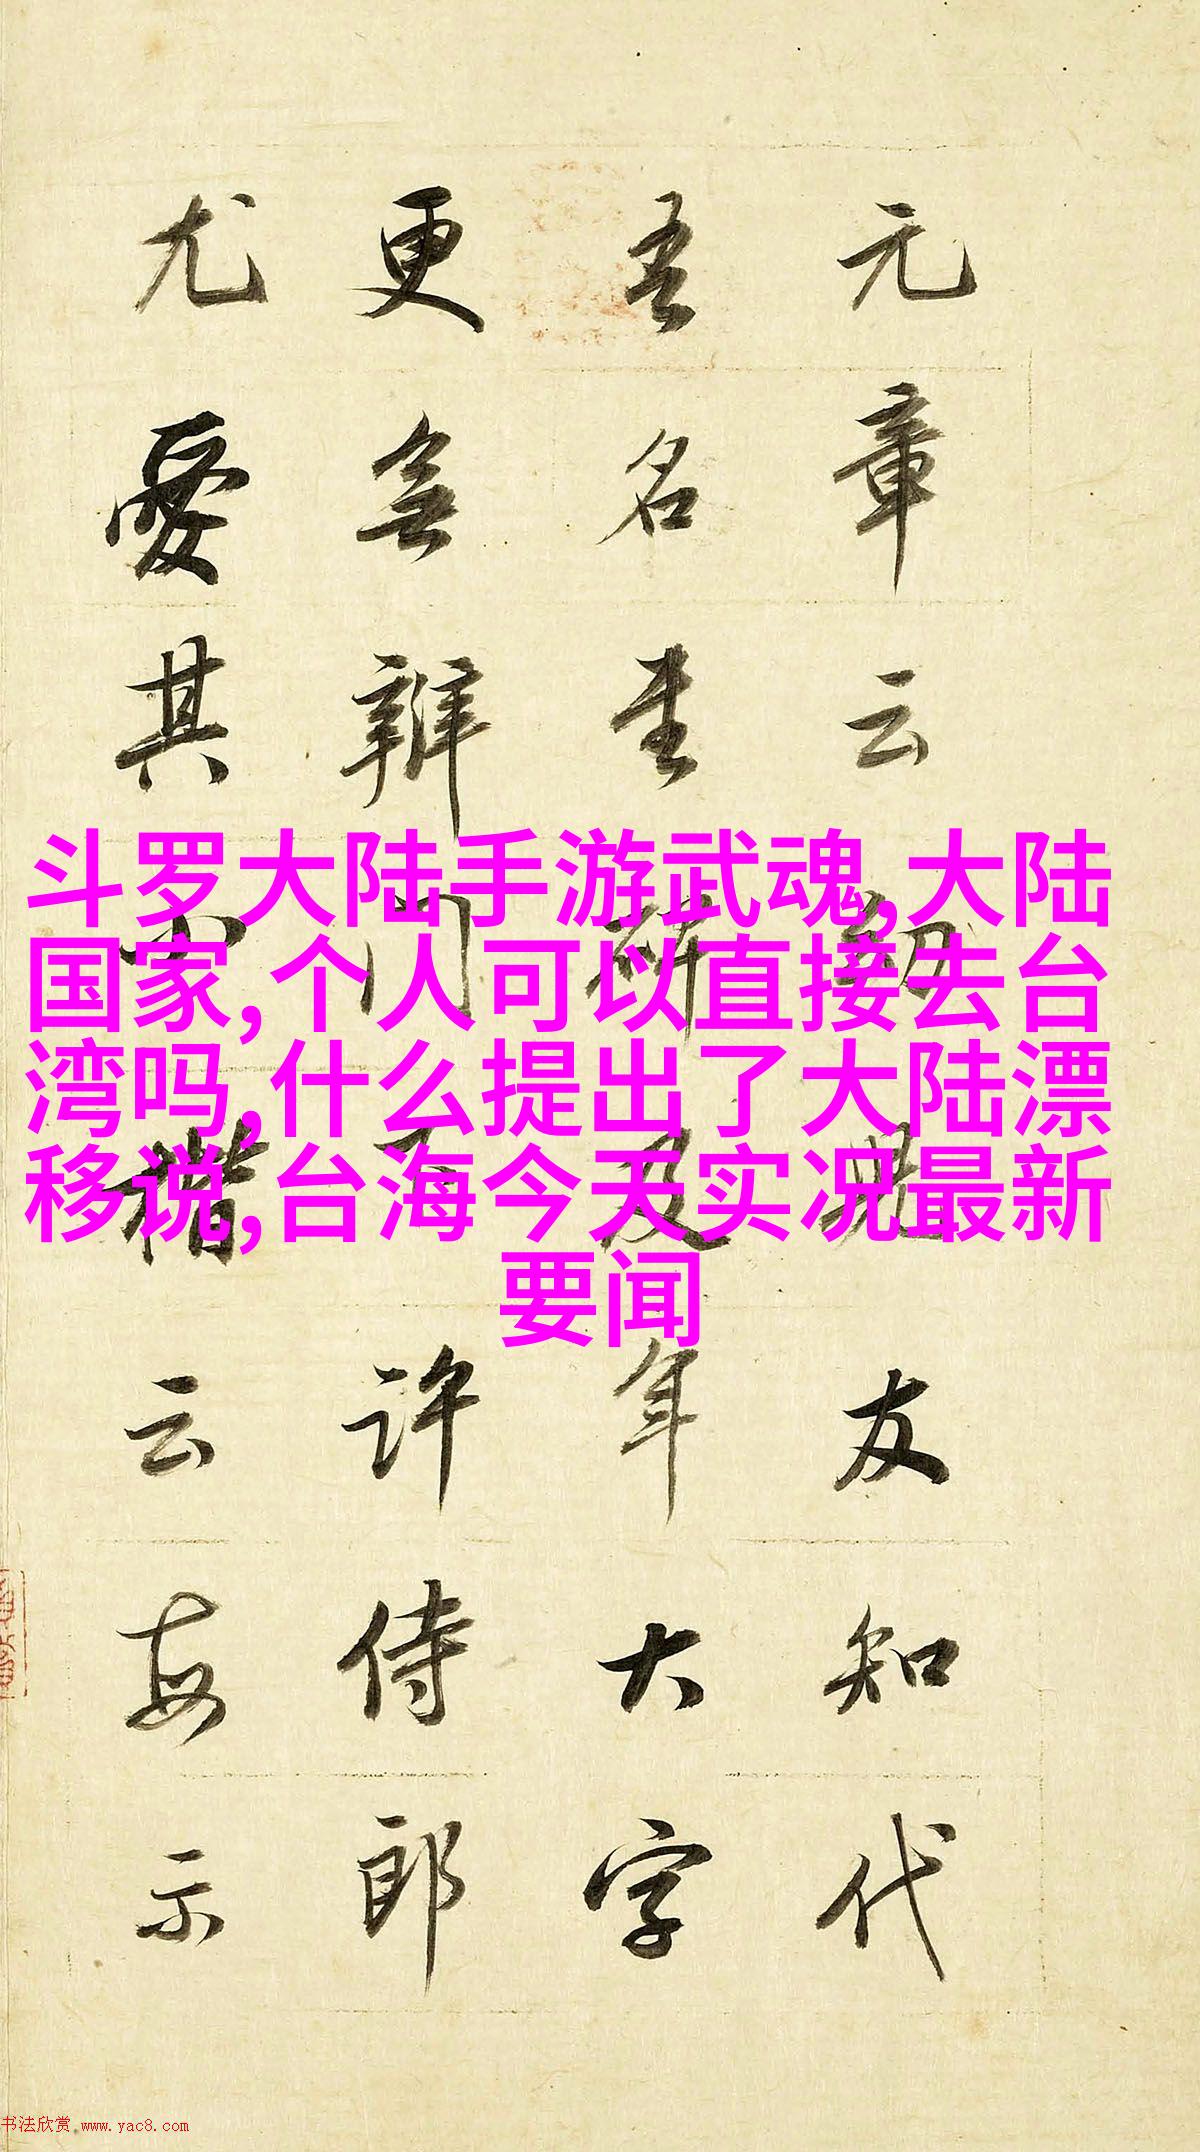 元章云友知代
吾名及年大字
更無辯門下許侍郎
尤愛其小楷云每示
斗罗大陆手游武魂,大陆
国家,个人可以直接去台
湾吗,什么提出了大陆漂
移说,台海今天实况最新
要闻
书法欣赏.www.yac8.com